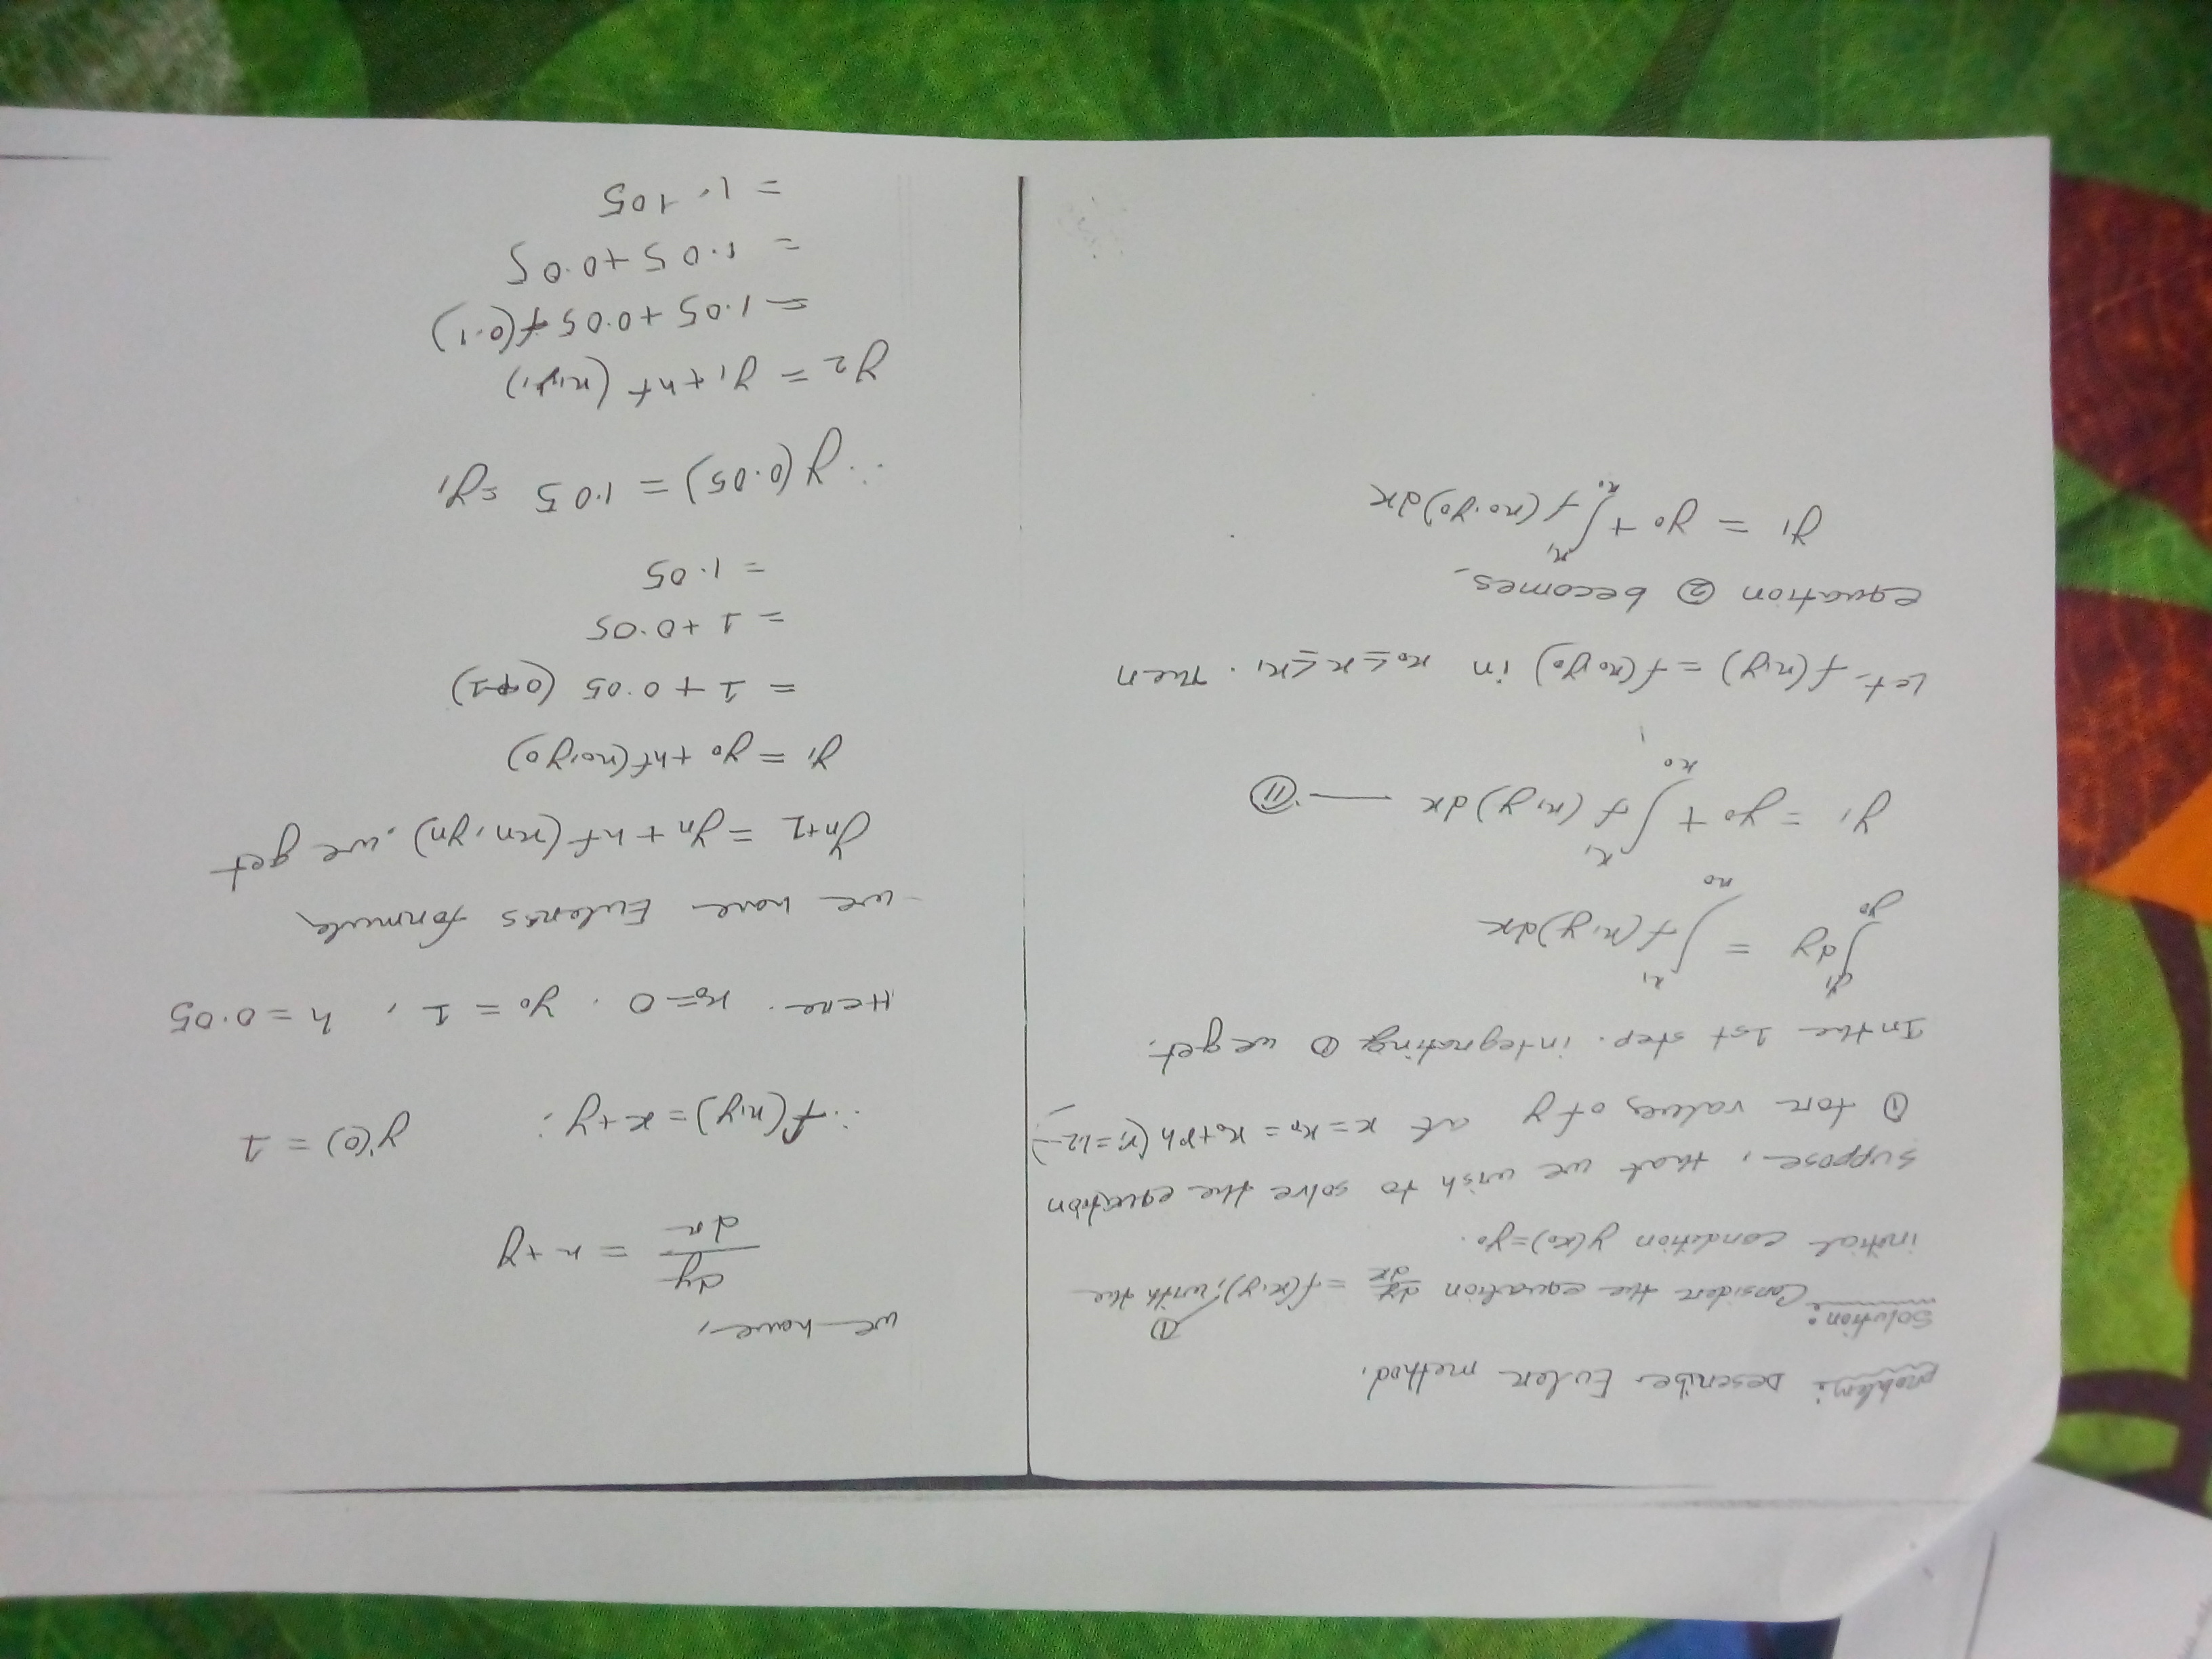 problem: Describe Euler method.
Solution:
Consider the equation dy/dx = f(x,y), with the ①
initial condition y(x₀)=y₀.
suppose, that we wish to solve the equation
① for values of y at x = xᵣ = x₀+rh (r=1,2--)
In the 1st step. integrating ① we get.
∫_{y₀}^{y₁} dy = ∫_{x₀}^{x₁} f(x,y)dx
y₁ = y₀ + ∫_{x₀}^{x₁} f(x,y)dx — ⑪
Let f(x,y) = f(x₀,y₀) in x₀≤x≤x₁. Then
equation ② becomes,
y₁ = y₀ + ∫_{x₀}^{x₁} f(x₀,y₀)dx
we have,
dy/dx = x+y
∴ f(x,y) = x+y; y'(0) = 1
Here. x₀=0. y₀ = 1, h = 0.05
we have Euler's formula
yn+1 = yn + hf(xn,yn), we get
y₁ = y₀ + hf(x₀,y₀)
= 1 + 0.05 (0+1)
= 1 + 0.05
= 1.05
∴ y(0.05) = 1.05 = y₁
y₂ = y₁ + hf (x₁,y₁)
= 1.05 + 0.05 f(0.1)
= 1.05 + 0.05
= 1.105